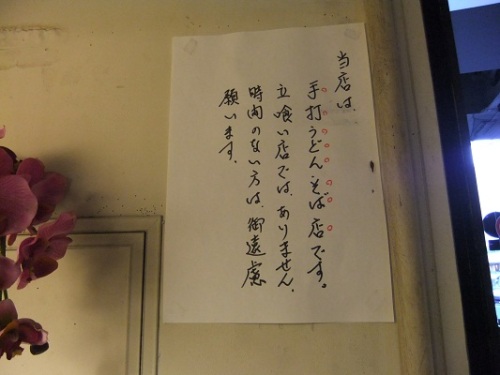 当店は、
手打うどん・そば店です。
立喰い店では、ありません。
時間のない方は、御遠慮
願います。